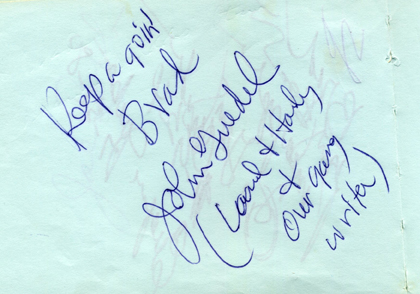 Keep a goin'
Brad
John Guedel
(Laurel & Hardy
+
Our gang
writer)